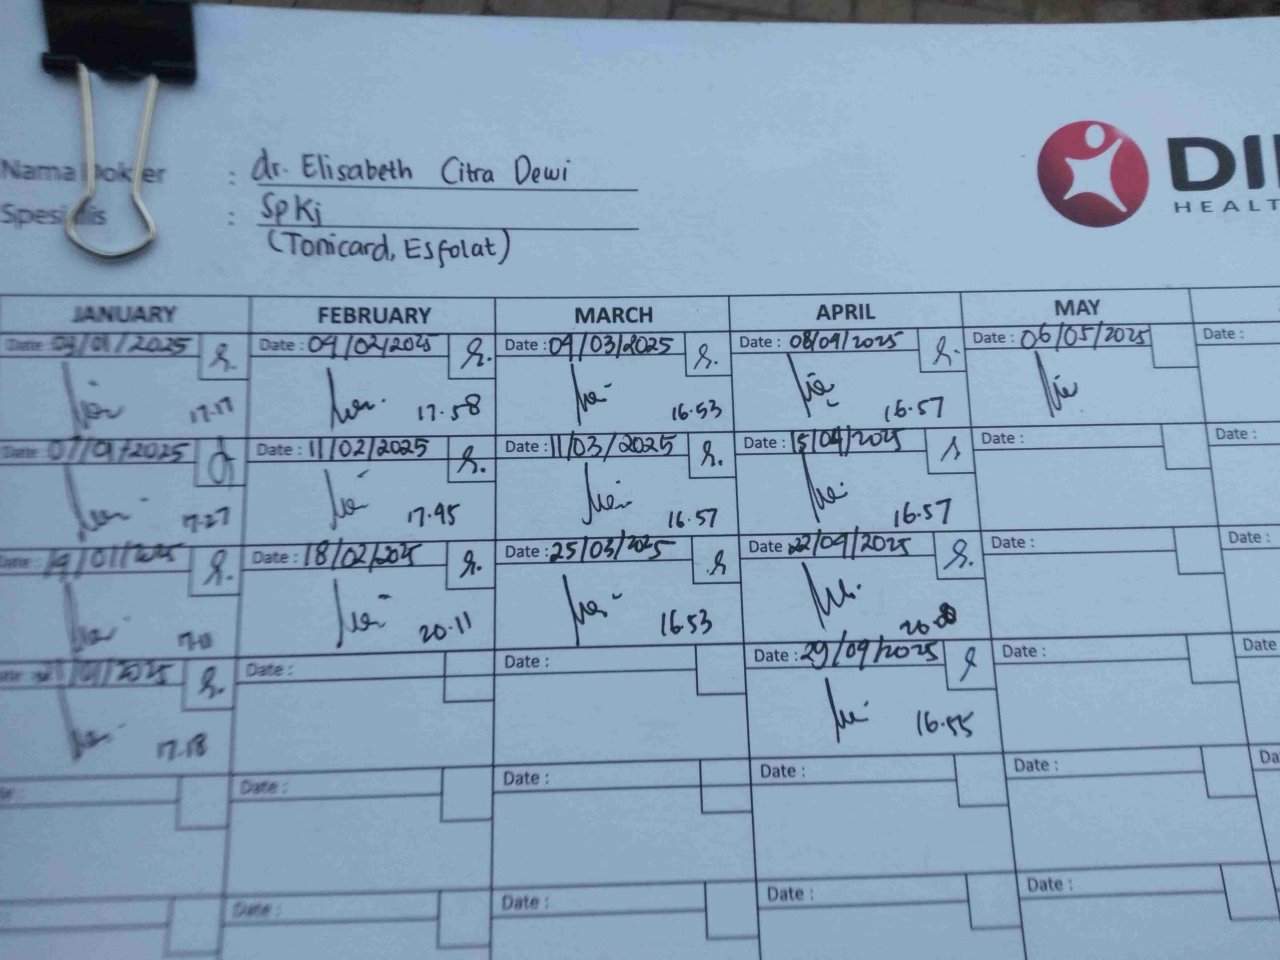 Nama Dokter : dr. Elisabeth Citra Dewi
Spesialis : SpKj
(Tonicard, Esfolat)
DI
HEALT
JANUARY FEBRUARY MARCH APRIL MAY
Date : 04/02/2025 Date : 04/03/2025 Date : 08/04/2025 Date : 06/05/2025 Date :
17.17 17.58 16.53 16.57
Date : 07/01/2025 Date : 11/02/2025 Date : 11/03/2025 Date : 15/04/2025 Date : Date :
17.27 17.45 16.57 16.57
Date : 14/01/2025 Date : 18/02/2025 Date : 25/03/2025 Date : 22/04/2025 Date : Date :
20.11 16.53
Date : Date : Date : 29/04/2025 Date : Date
17.18 16.55
Date : Date : Date : Date : Da
Date : Date : Date : Date :